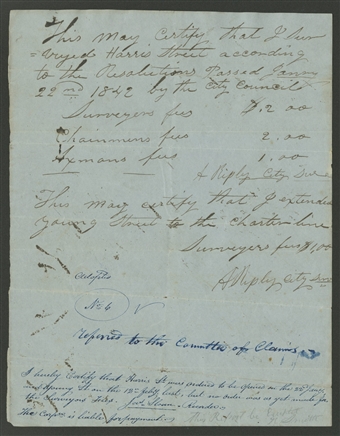 This may certify that I Sur
=veyed Harris Street according
to the Resolutions Passed Janry
22nd 1842 by the City Council
Surveyers fees $2.00
Chainmens fees 2.00
Axmans fees 1.00
A Ripley City Sur
This may certify that I extended
young Street to the Charter line
Surveyers fees $1,00
A Ripley City
No 6
referred to the Committe of Claims
I hereby Certify that Harris St was ordered to be opened on the 22d Jany
and Spring St on the 12th Feby last, but no order was as yet made for
the Surveyors fees. Jno Sloan Recorder
The Corpor is liable for payment